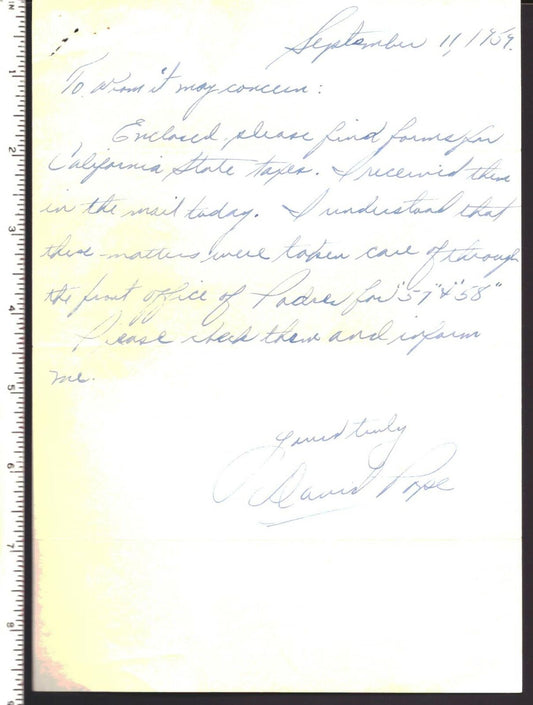 September 11, 1959.
To whom it may concern:
Enclosed please find forms for
California State taxes. I received them
in the mail today. I understood that
these matters were taken care of through
the front office of Padres for "57" & "58"
Please check them and inform
me.
Yours truly
David Pope
IN
1
2
3
4
5
6
7
8